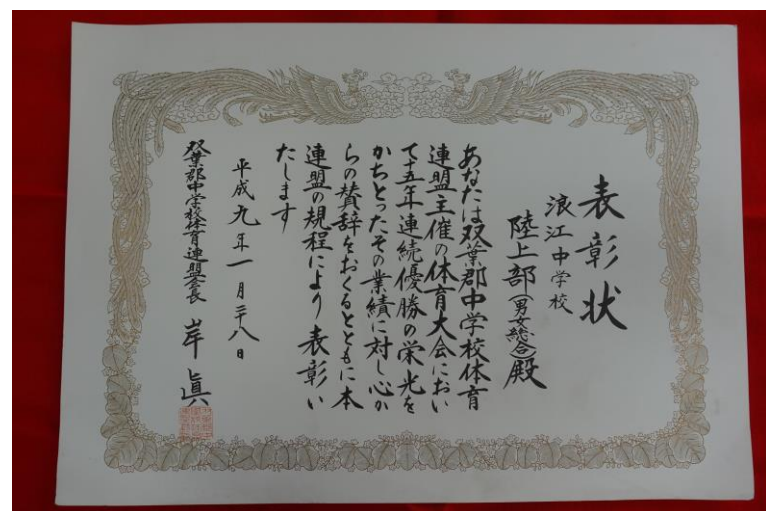 表彰状
浪江中学校
陸上部(男女総合)殿
あなたは双葉郡中学校体育
連盟主催の体育大会におい
て十五年連続優勝の栄光を
かちとったその業績に対し心か
らの賛辞をおくるとともに本
連盟の規程により表彰い
たします
平成九年一月二十八日
双葉郡中学校体育連盟会長 岸眞